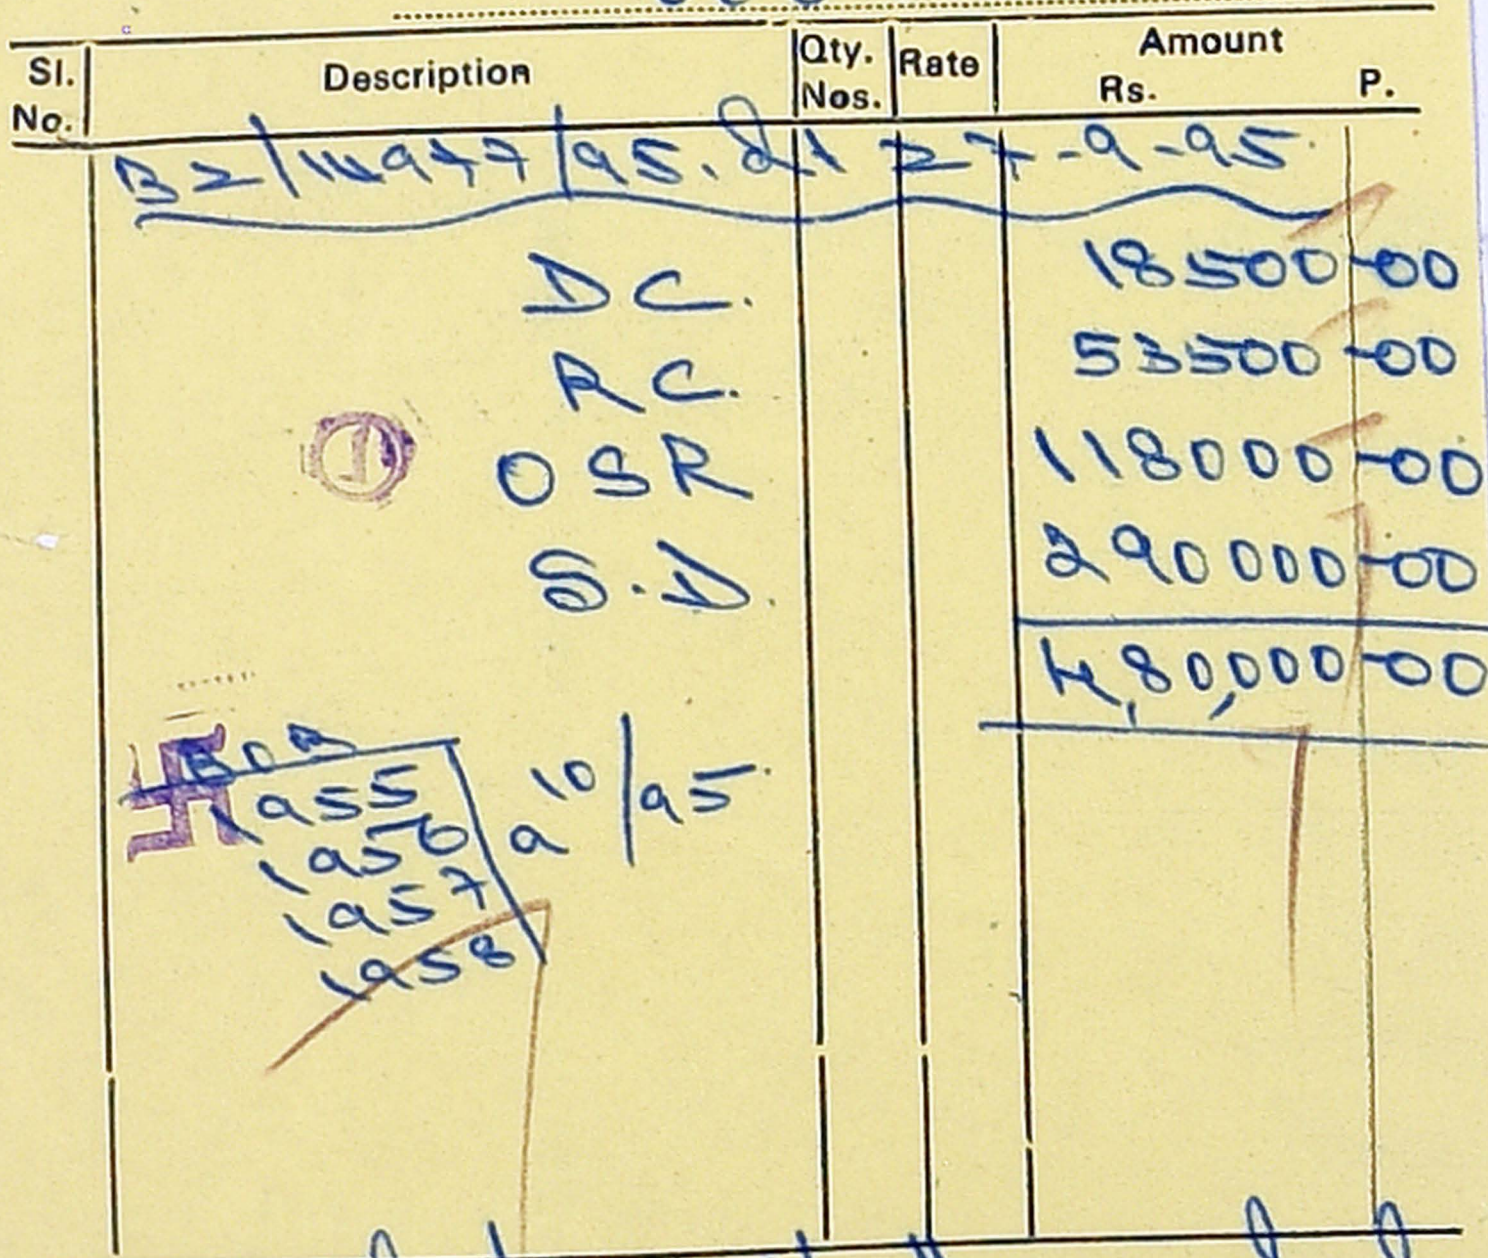 Sl. No. Description Qty. Nos. Rate Amount Rs. P.
B2/14977/95. dt 27-9-95
DC. 18500-00
RC. 53500-00
OSR 118000-00
S.D. 290000-00
4,80,000-00
1955
1956
1957
1958
9/10/95